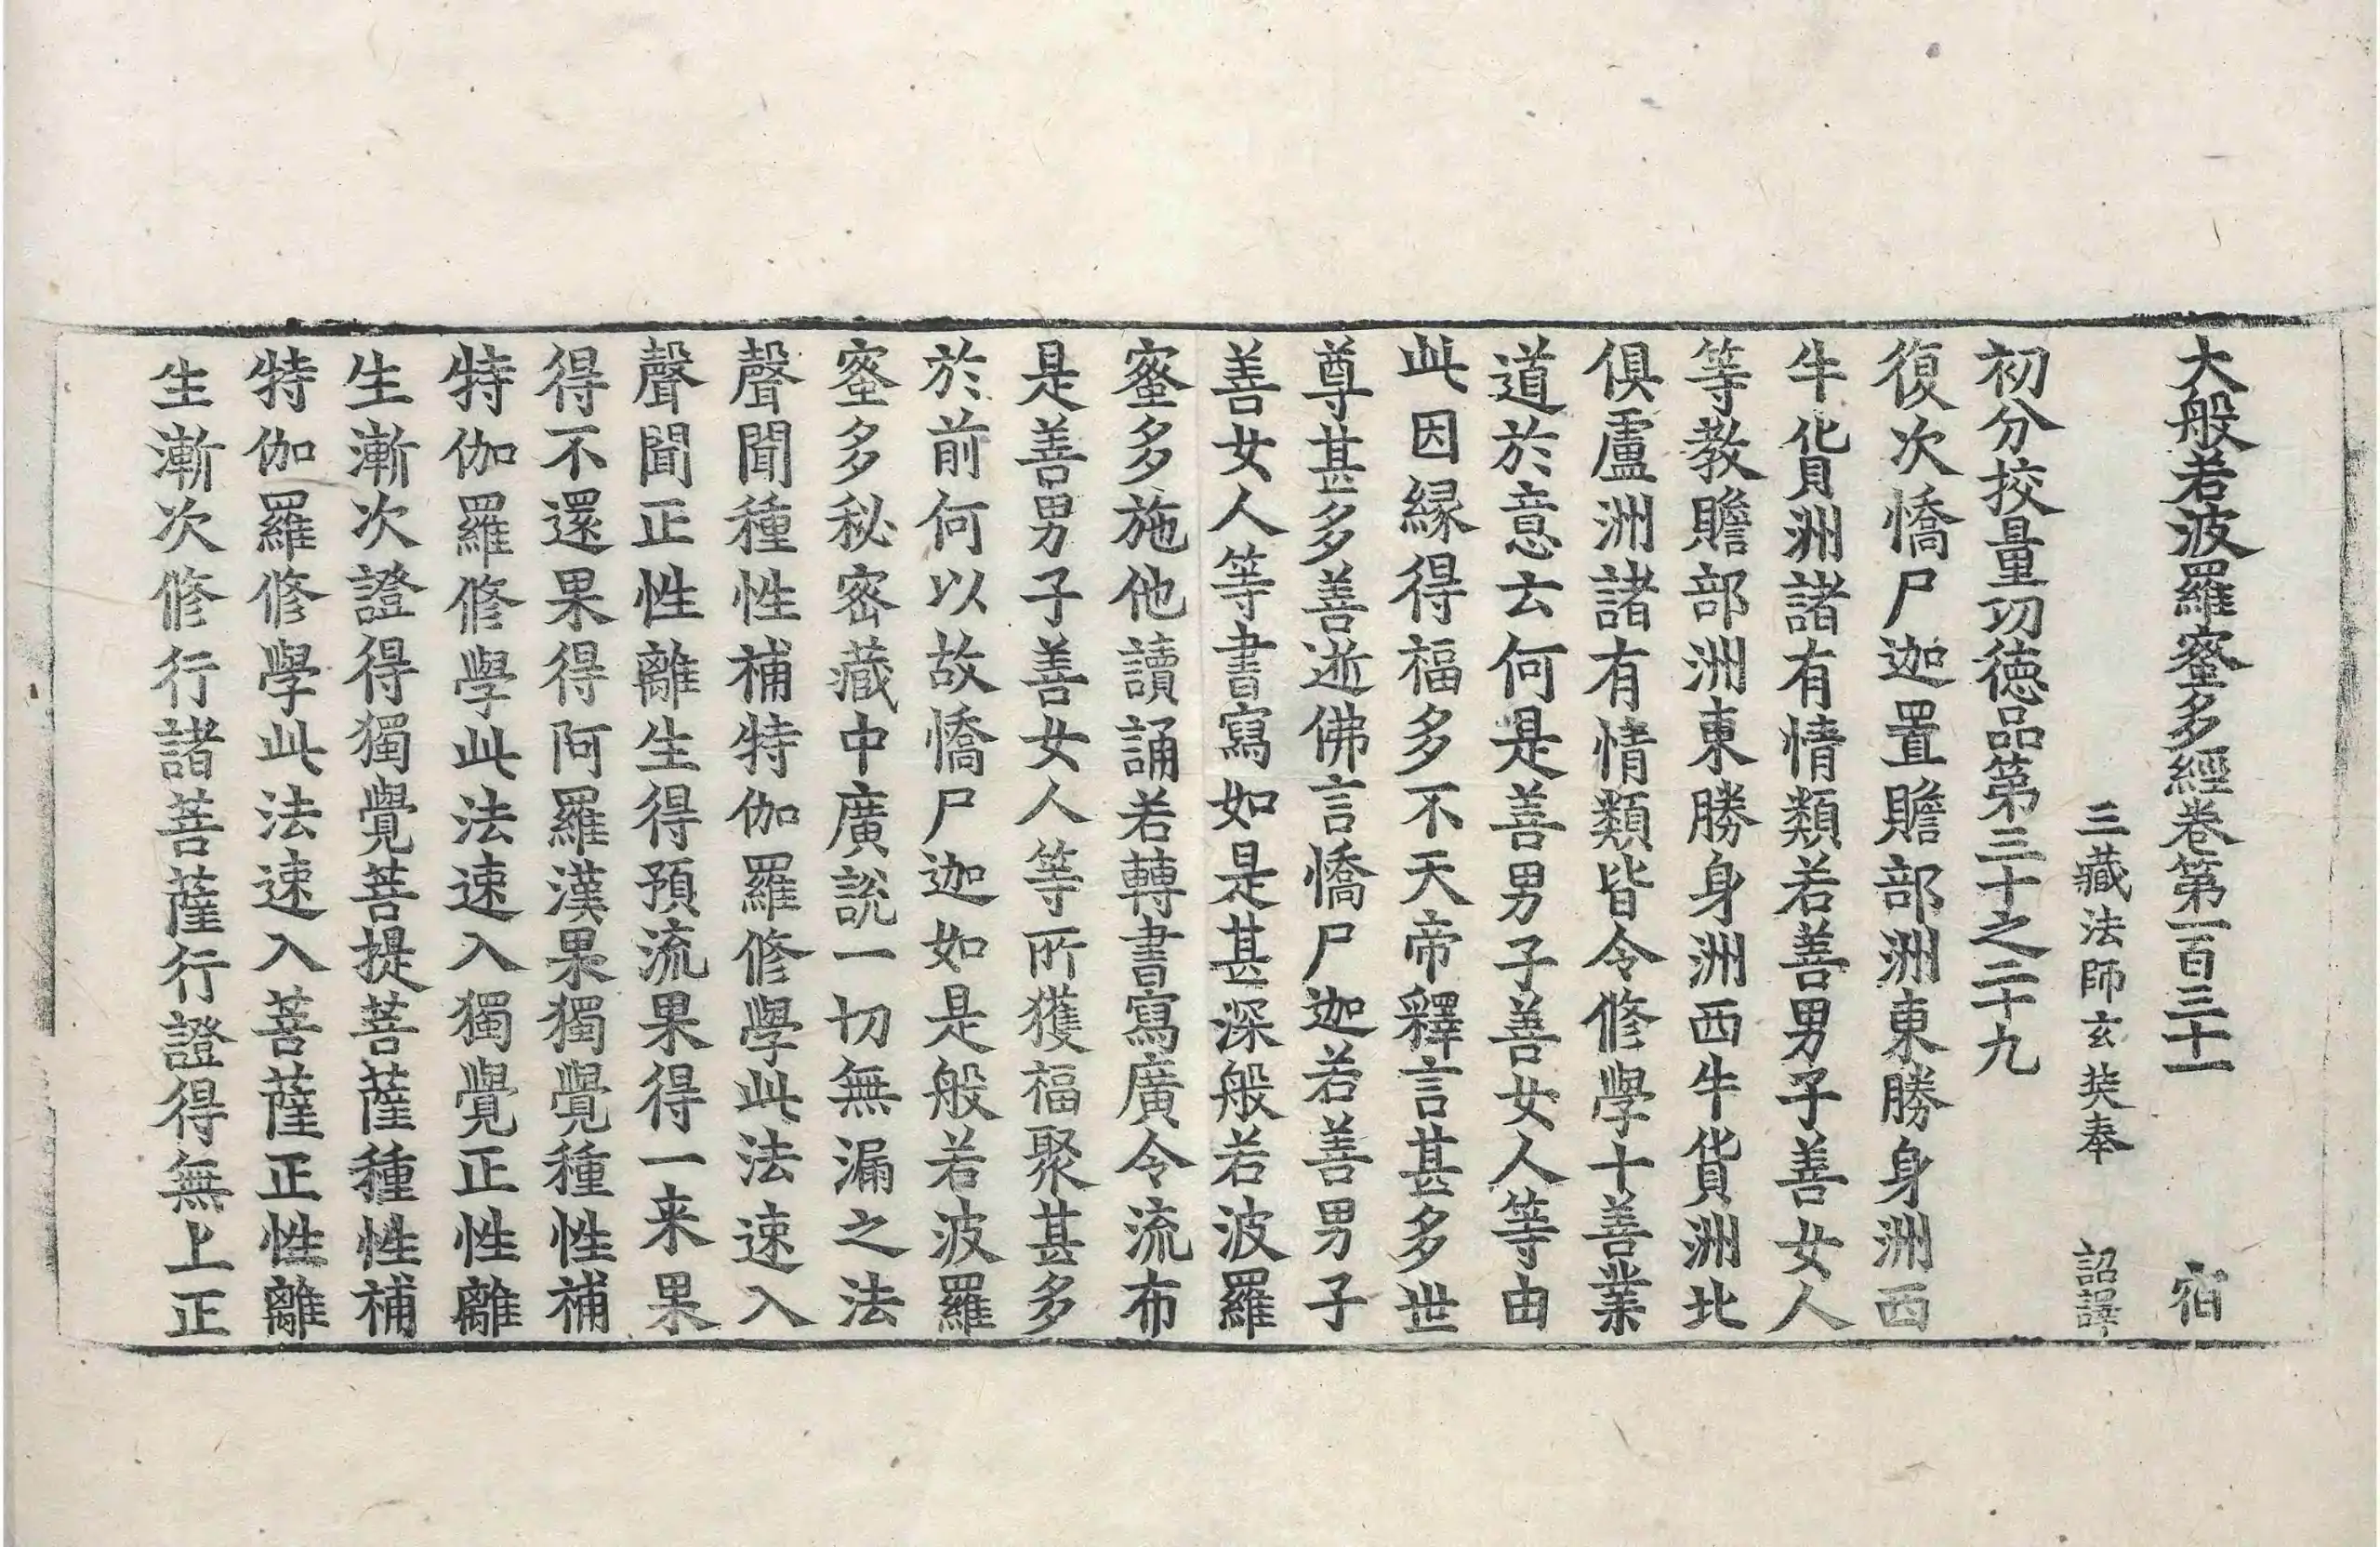 大般若波羅蜜多經卷第一百三十一　宿
三藏法師玄奘奉　詔譯
初分挍量功德品第三十之二十九
復次憍尸迦置贍部洲東勝身洲西
牛貨洲諸有情類若善男子善女人
等教贍部洲東勝身洲西牛貨洲北
俱盧洲諸有情類皆令修學十善業
道於意云何是善男子善女人等由
此因緣得福多不天帝釋言甚多世
尊甚多善逝佛言憍尸迦若善男子
善女人等書寫如是甚深般若波羅
蜜多施他讀誦若轉書寫廣令流布
是善男子善女人等所獲福聚甚多
於前何以故憍尸迦如是般若波羅
蜜多秘密藏中廣說一切無漏之法
聲聞種性補特伽羅修學此法速入
聲聞正性離生得預流果得一来果
得不還果得阿羅漢果獨覺種性補
特伽羅修學此法速入獨覺正性離
生漸次證得獨覺菩提菩薩種性補
特伽羅修學此法速入菩薩正性離
生漸次修行諸菩薩行證得無上正